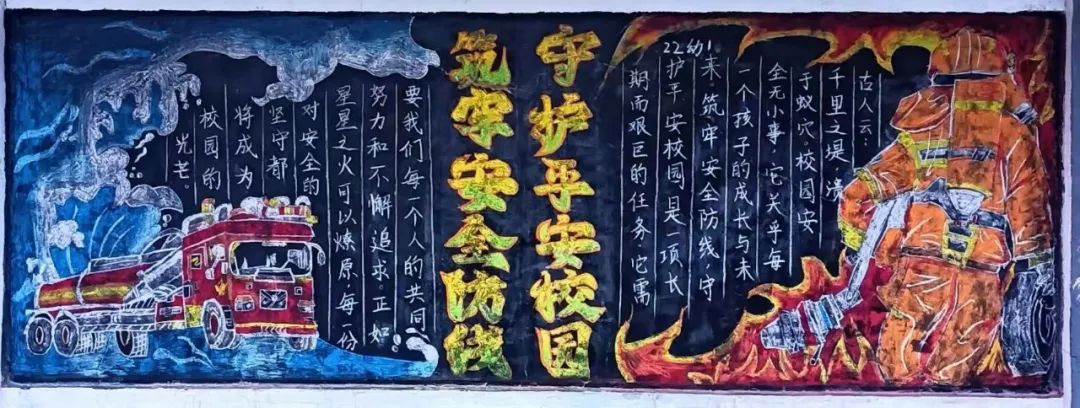 古人云：
千里之堤，溃
于蚁穴。校园安
全无小事，它关乎每
一个孩子的成长与未
来。筑牢安全防线，守
护平安校园是一项长
期而艰巨的任务，它需
22幼1
守护平安校园
筑牢安全防线
要我们每一个人的共同
努力和不懈追求。正如
星星之火可以燎原，每一份
对安全的
坚守都
将成为
校园的
光芒。